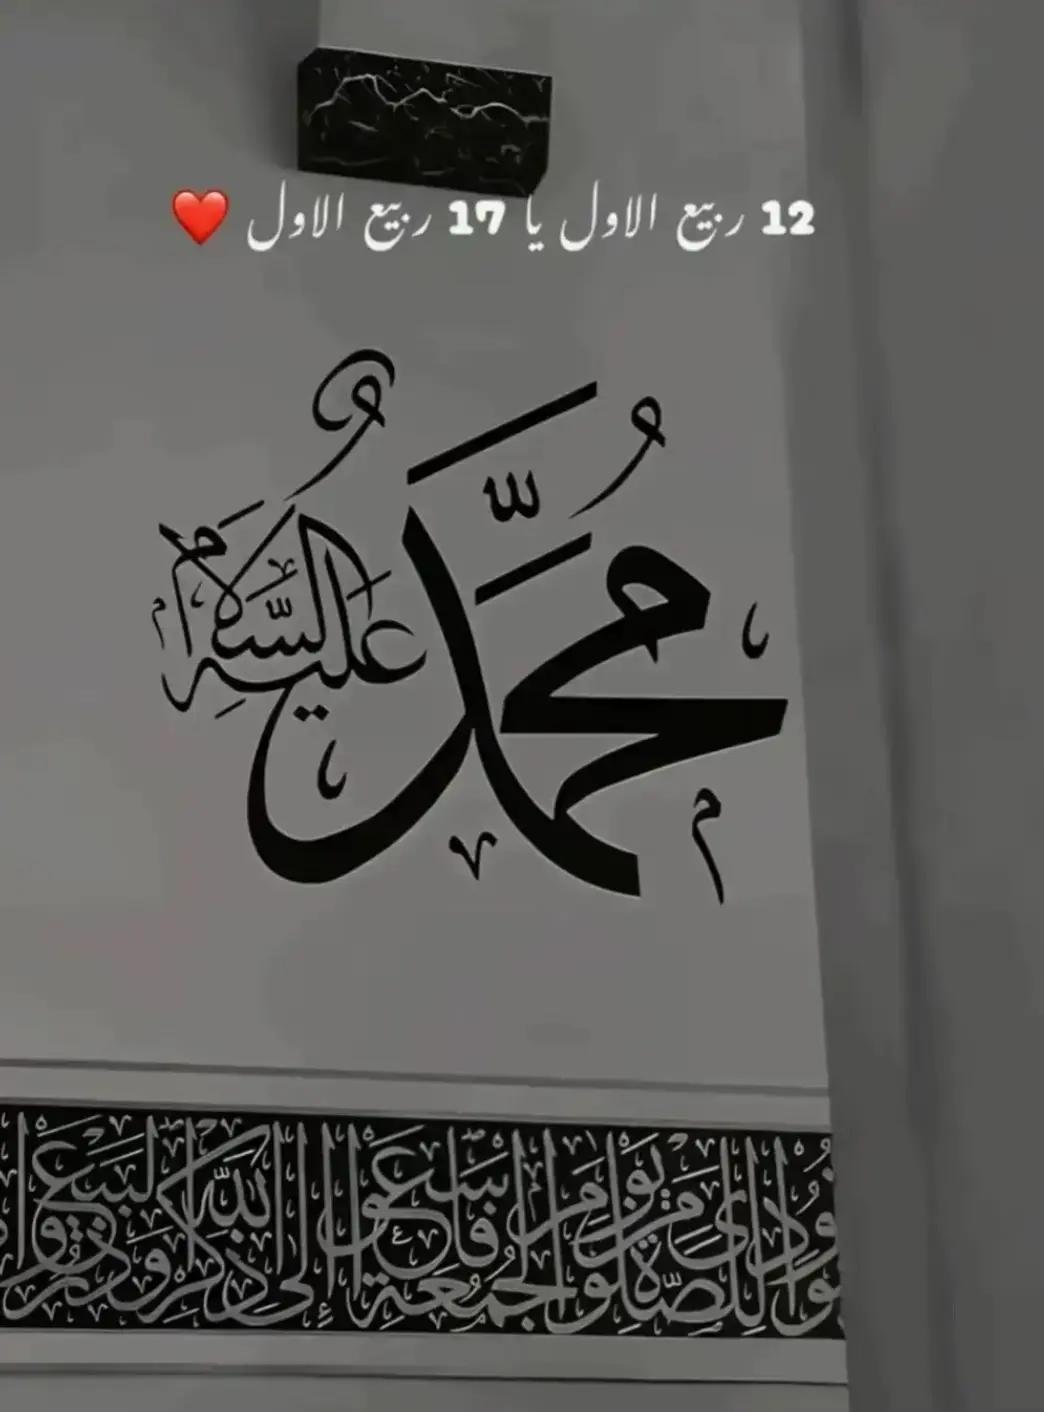 12 ربیع الاول یا 17 ربیع الاول ❤️
محمد عليه السلام
نودي للصلاة من يوم الجمعة فاسعوا إلى ذكر الله وذروا البيع